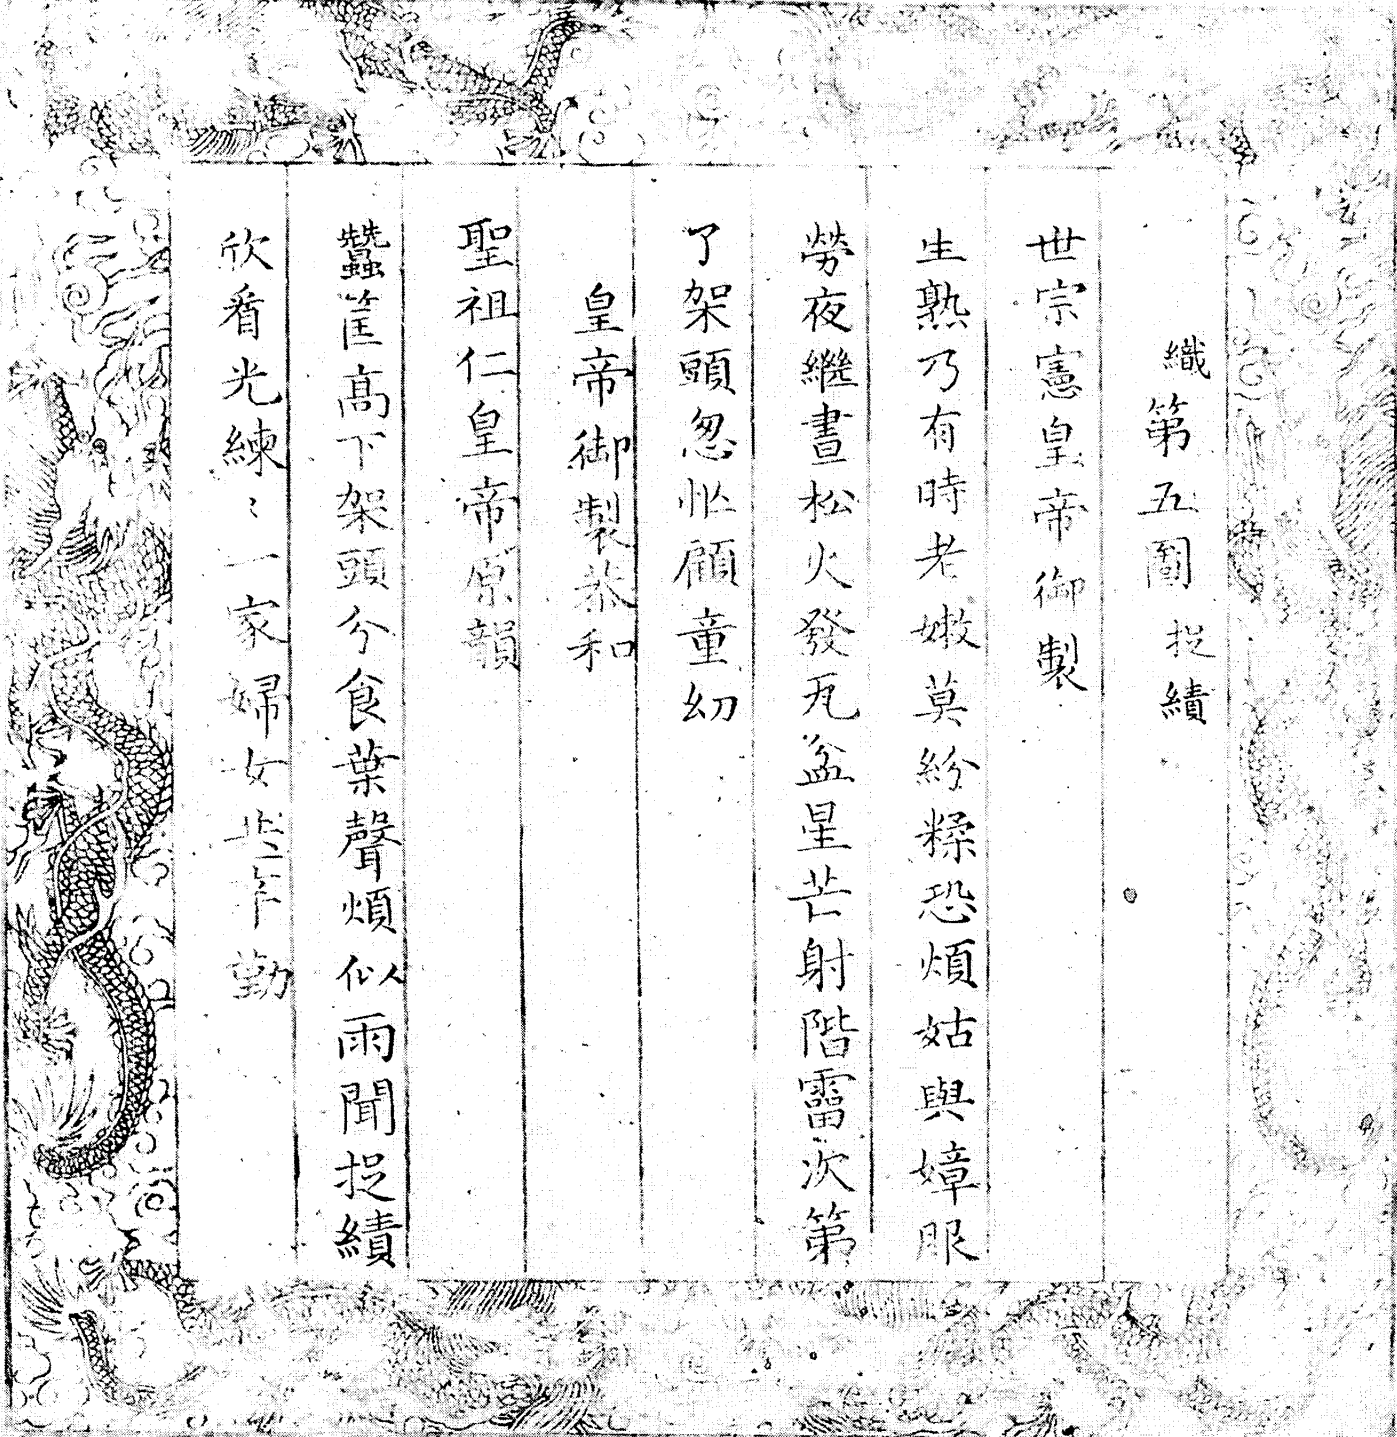 織第五圖捉績
世宗憲皇帝御製
生熟乃有時老嫩莫紛糅恐煩姑與嫜眼
勞夜繼晝松火發瓦盆星芒射階霤次第
了架頭忽忙顧童幼
皇帝御製恭和
聖祖仁皇帝原韻
蠶筐高下架頭分食葉聲煩似雨聞捉績
欣看光練〻一家婦女共辛勤